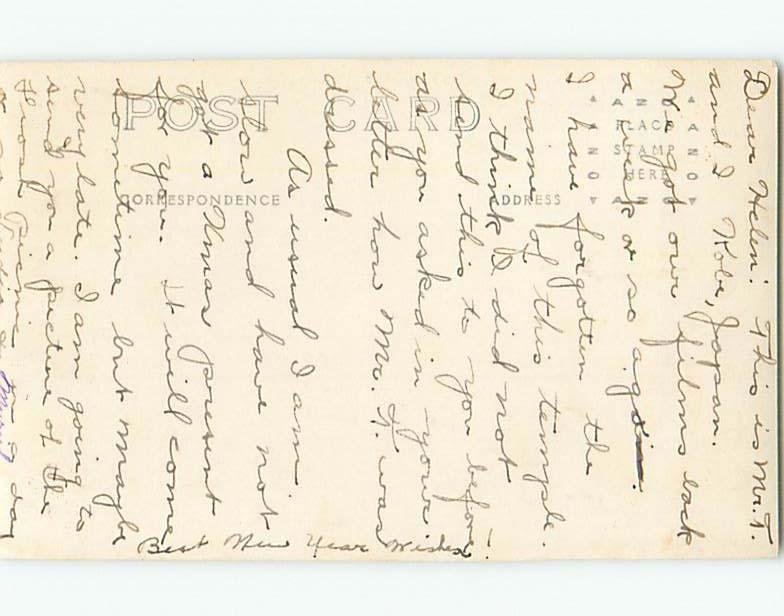 Dear Helen: This is Mr. T.
and I Kobe, Japan.
We got our films back
a week or so ago.
I have forgotten the
name of this temple.
I think I did not
send this to you before!
as you asked in your
letter how Mr. T. was
dressed.
As usual I am
slow and have not
got a Xmas present
for you. It will come
sometime but maybe
very late. I am going to
send you a picture of the
in a day
Best New Year Wishes
POST CARD
CORRESPONDENCE
ADDRESS
PLACE
STAMP
HERE
AZO